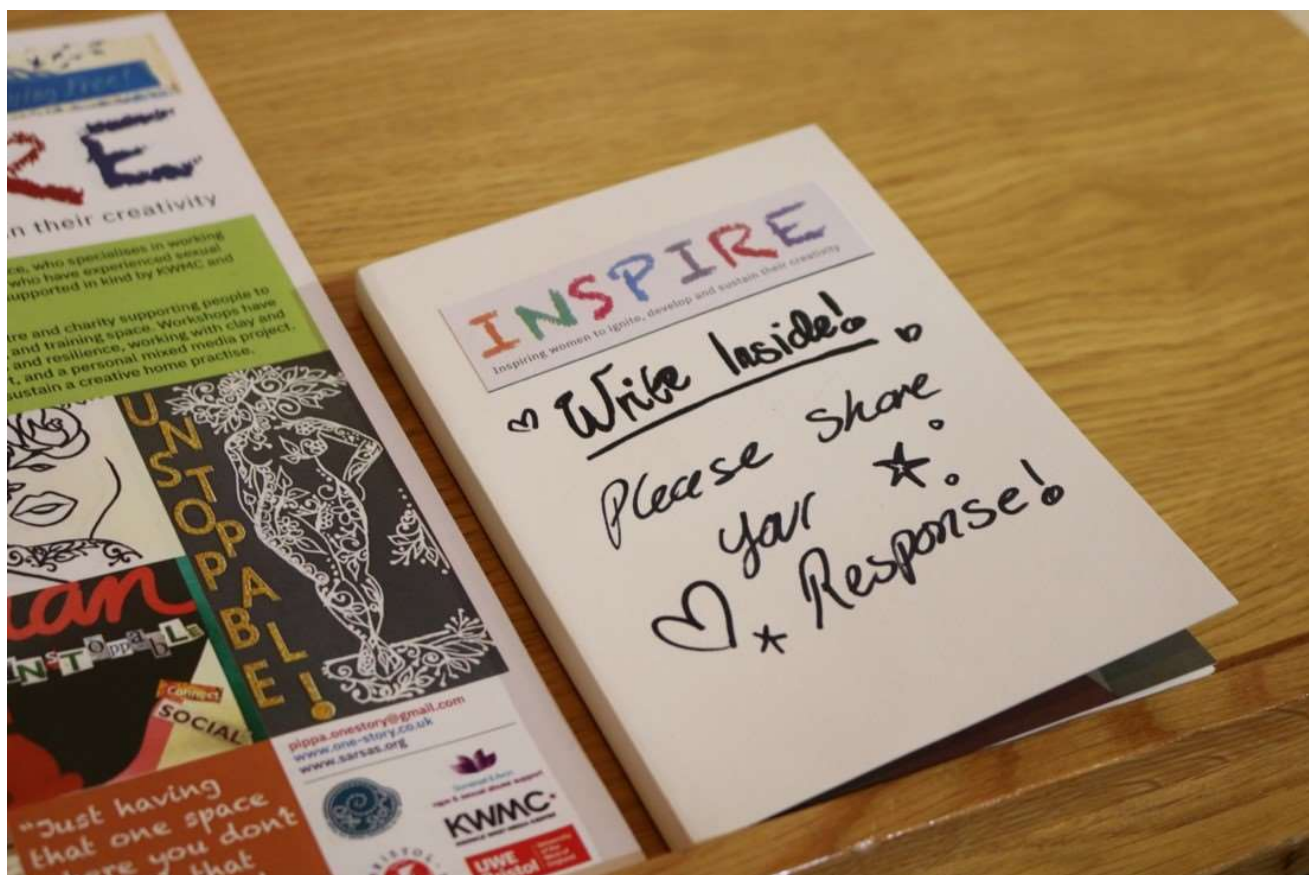 RE
n their creativity
ce, who specialises in working
who have experienced sexual
upported in kind by KWMC and
re and charity supporting people to
and training space. Workshops have
and resilience, working with clay and
t, and a personal mixed media project,
sustain a creative home practise.
UNSTOPPABLE!
an
NSToppabLe
Connect
SOCIAL
pippa.onestory@gmail.com
www.one-story.co.uk
www.sarsas.org
"Just having
that one space
where you dont
that
Somerset & Avon
rape & sexual abuse support
KWMC
UWE
Bristol
University
of the
West of
England
INSPIRE
Inspiring women to ignite, develop and sustain their creativity
Write Inside!
Please Share
your
Response!